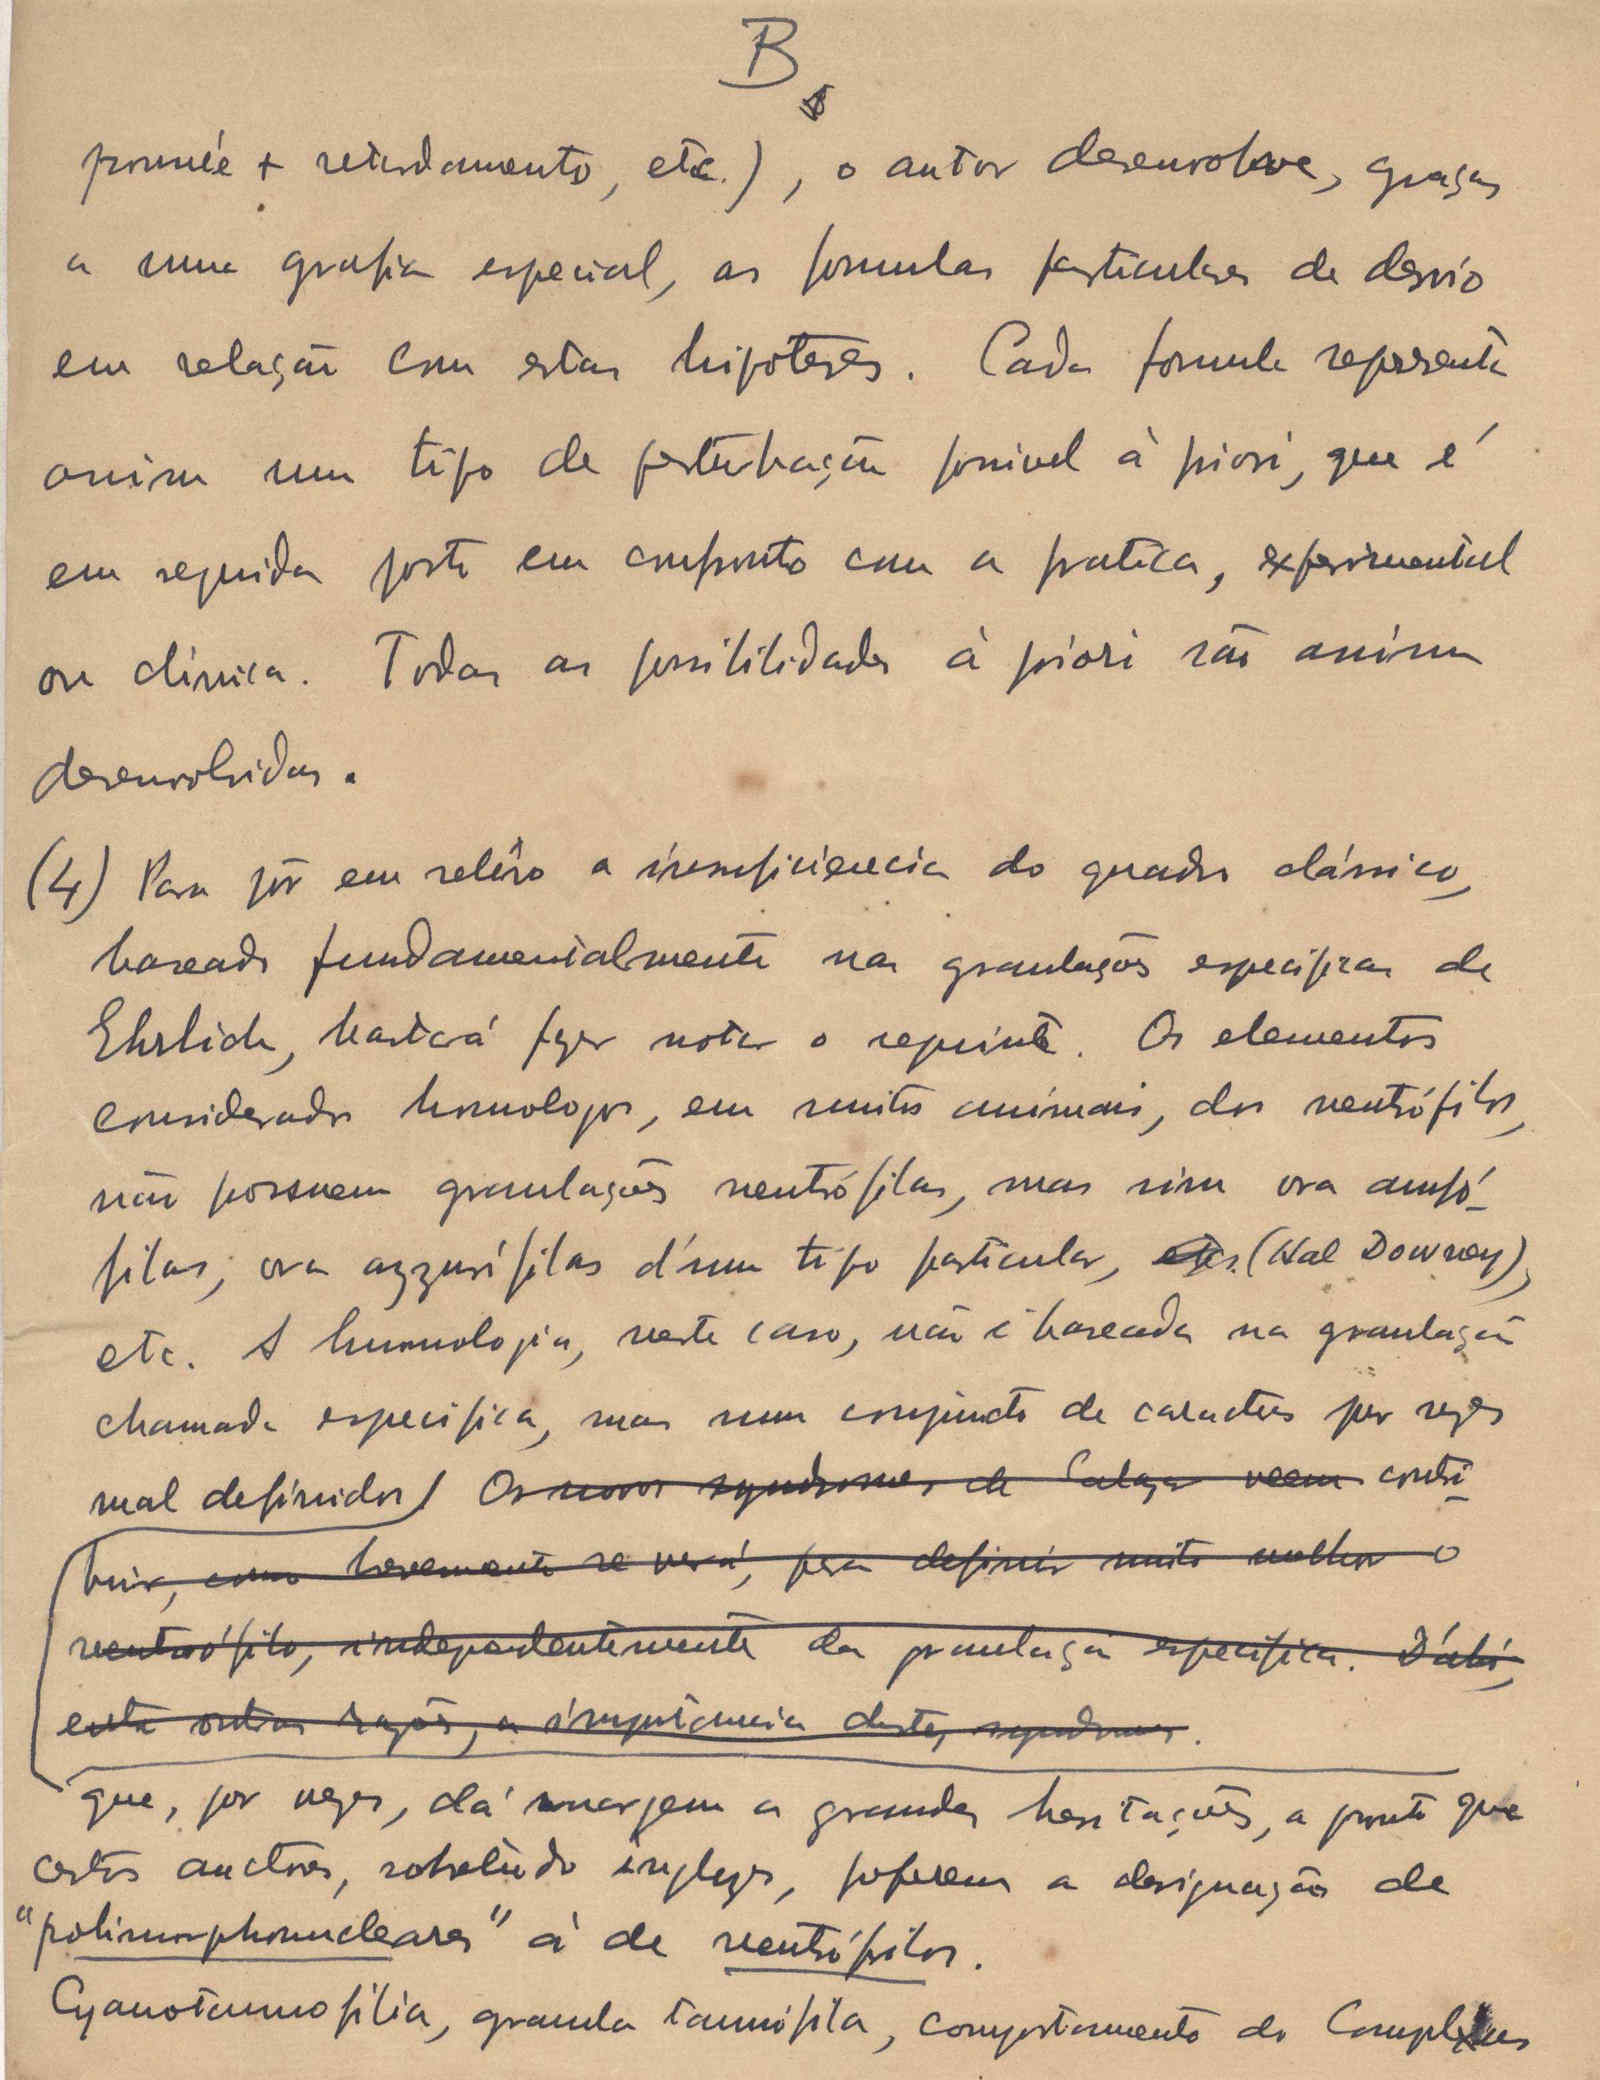 B
formée + retardamento, etc.), o autor desenvolve, graças
a uma grafia especial, as formulas particulares de desvio
em relação com estas hipoteses. Cada formula representa
assim um tipo de perturbação possivel à priori, que é
em seguida posto em confronto com a pratica, experimental
ou clínica. Todas as possibilidades à priori são assim
desenvolvidas.
(4) Para pôr em relêvo a insuficiencia do quadro clássico,
baseado fundamentalmente nas granulações especificas de
Ehrlich, bastará fazer notar o seguinte. Os elementos
considerados homologos, em muitos animais, dos neutrófilos,
não possuem granulações neutrófilas, mas sim ora amfó-
filas, ora azzurófilas d'um tipo particular, etc. (Hal Downey),
etc. A homologia, neste caso, não é baseada na granulação
chamada especifica, mas num conjuncto de caracteres por vezes
mal definidos Os novos syndromes de Salazar veem contri-
buir, como brevemente se verá, para definir muito melhor o
neutrófilo, independentemente da granulação especifica. D'ahi,
entre outras razões, a importancia destes syndromes.
que, por vezes, dá margem a grandes hesitações, a ponto que
certos auctores, sobretudo inglezes, preferem a designação de
"polimorphonucleares" à de neutrófilos.
Cyanotannofilia, granula tannófila, comportamento do Complexus